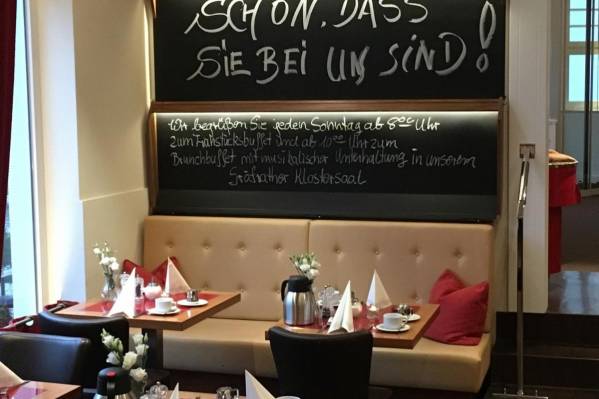 SCHÖN, DASS
SIE BEI UNS SIND!
Wir begrüßen Sie jeden Sonntag ab 8:00 Uhr
zum Frühstücksbuffet und ab 10:00 Uhr zum
Brunchbuffet mit musikalischer Unterhaltung in unserem
Gräfrather Klostersaal